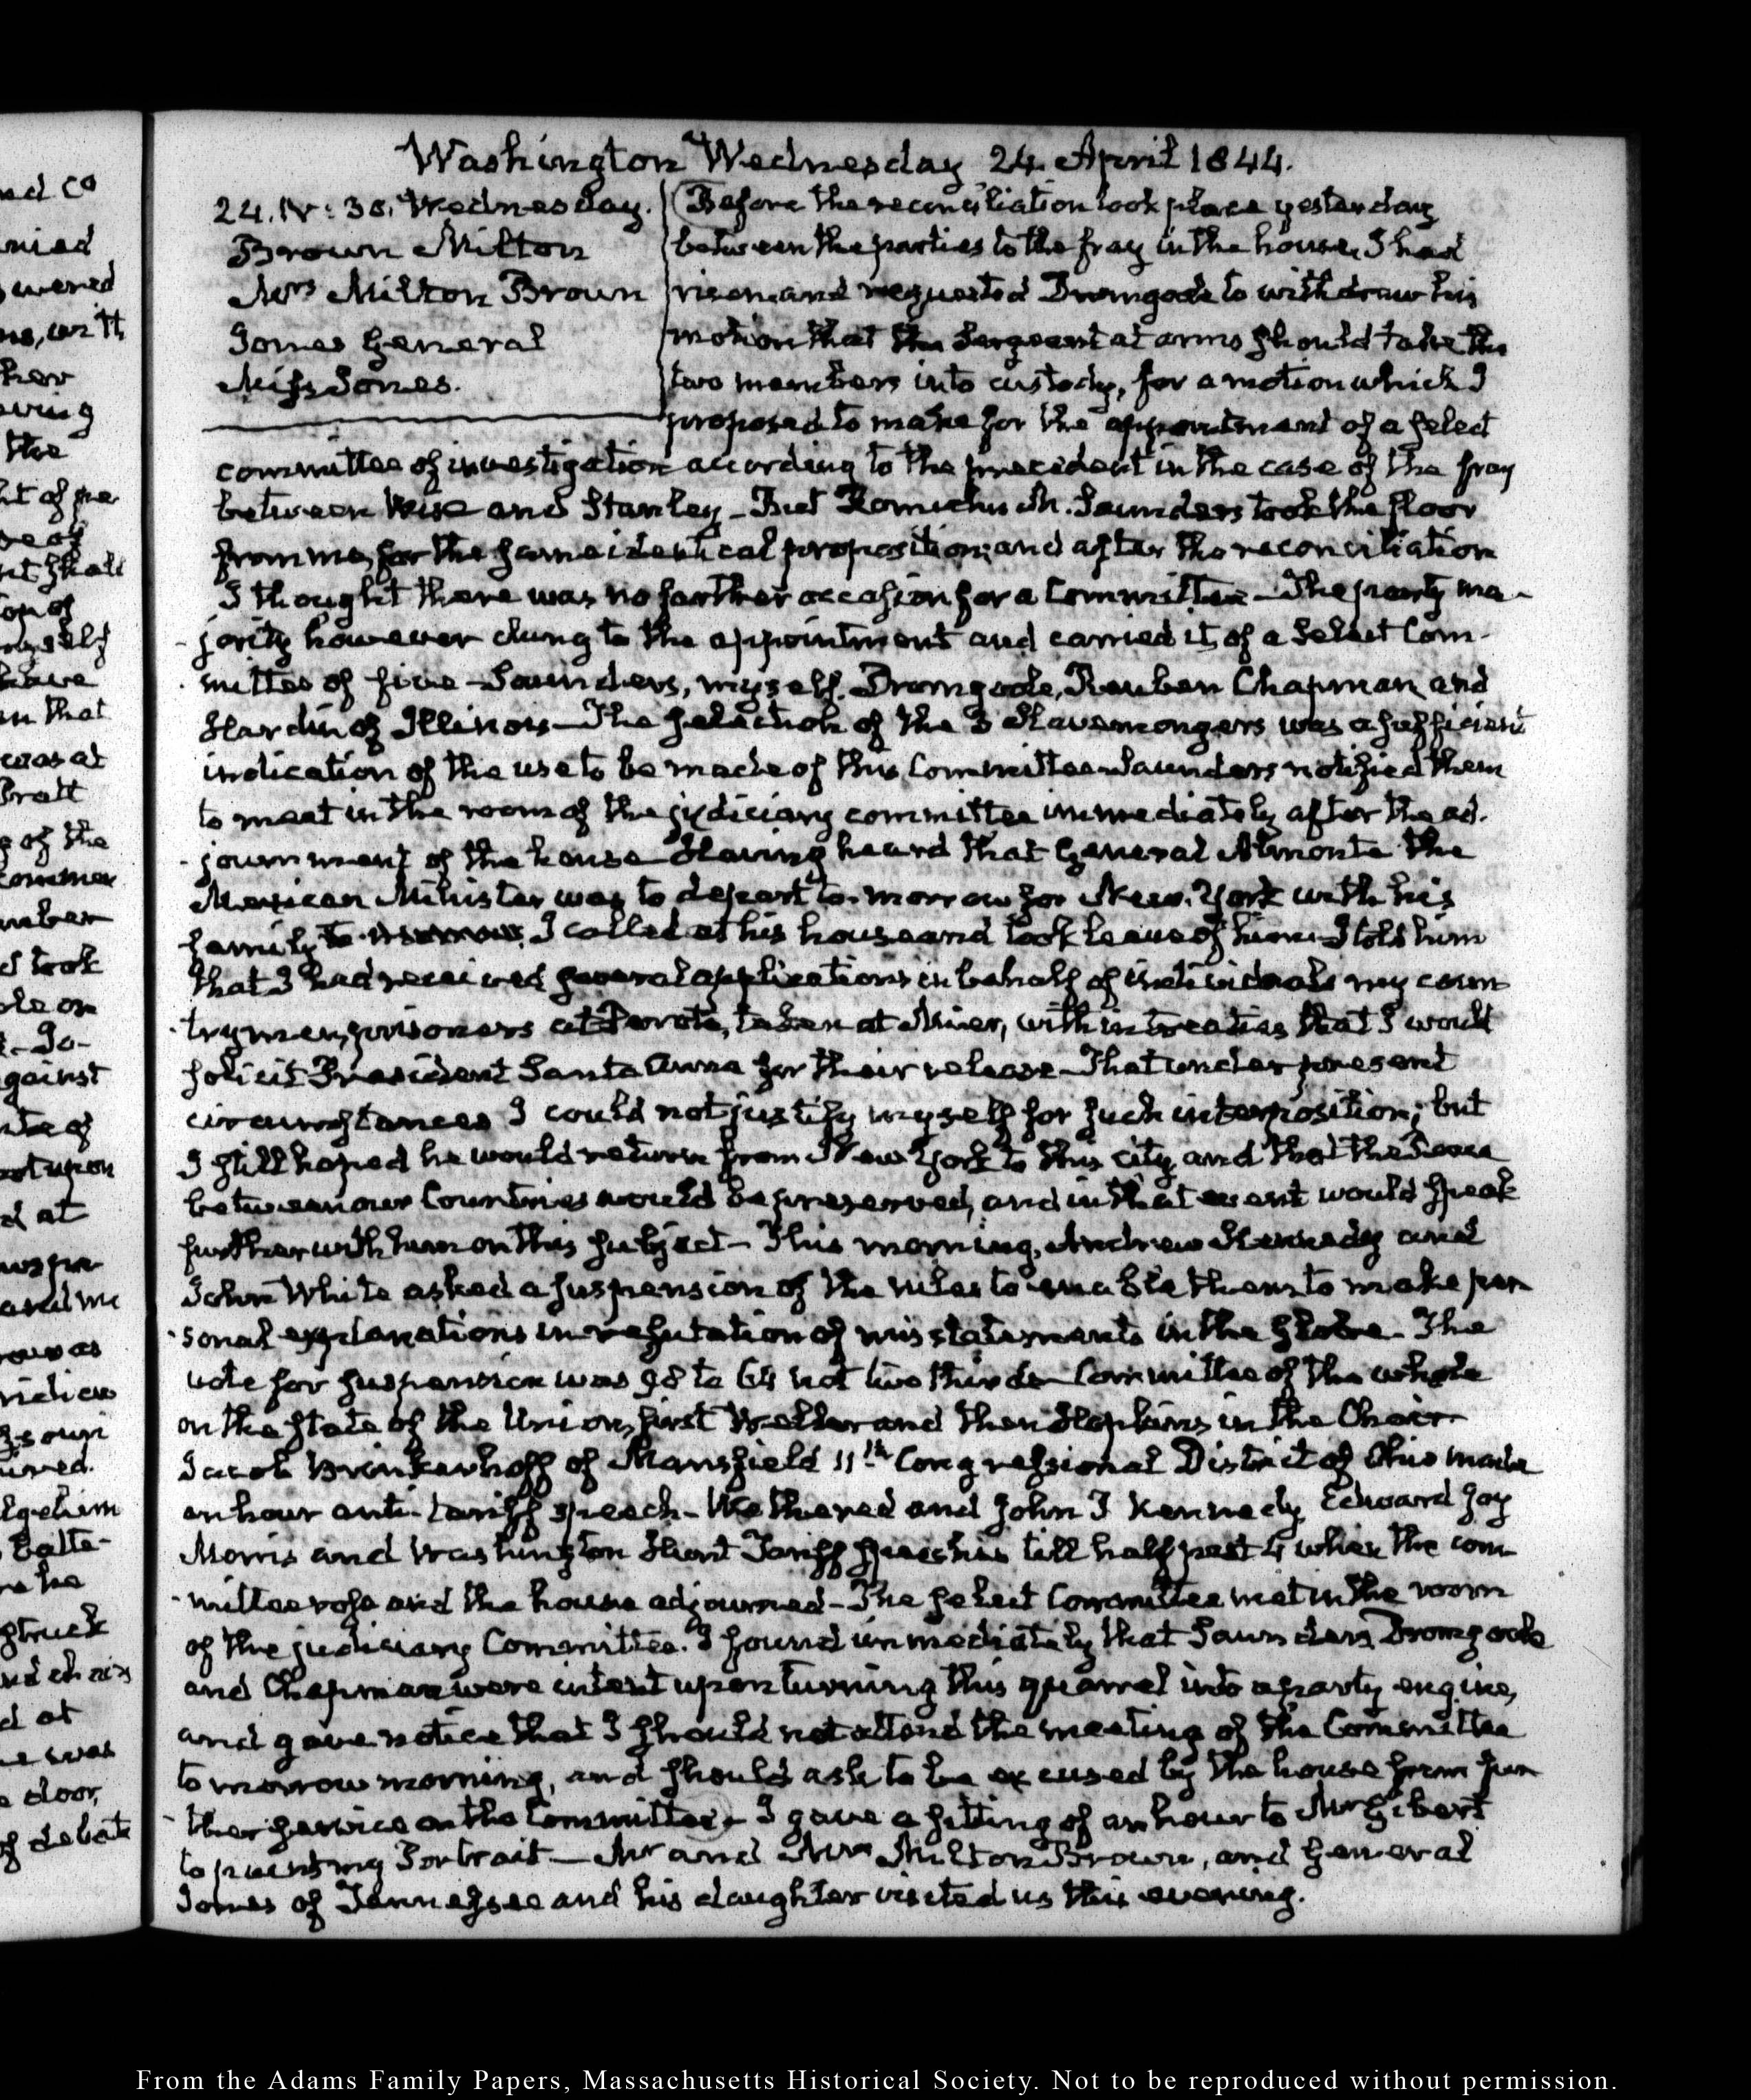 Washington Wednesday 24. April 1844.
24. IV: 30. Wednesday.
Brown Milton
Mrs Milton Brown
Jones General
Miss Jones.
Before the reconciliation took place yesterday
between the parties to the fray in the house, I had
risen and requested Dromgoole to withdraw his
motion that the Sergeant at arms should take the
two members into custody, for a motion which I
proposed to make for the appointment of a select
committee of investigation according to the precedent in the case of the fray
between Wise and Stanley – But Romulus M. Saunders took the floor
from me, for the same identical proposition; and after the reconciliation
I thought there was no further occasion for a Committee – The party ma-
jority however clung to the appointment and carried it, of a Select Com-
mittee of five – Saunders, myself, Dromgoole, Reuben Chapman and
Hardin of Illinois – The selection of the 3 Slavemongers was a sufficient
indication of the use to be made of this Committee – Saunders notified them
to meet in the room of the judiciary committee immediately after the ad-
journment of the house – Having heard that General Almonte the
Mexican Minister was to depart to-morrow for New-York with his
family to-morrow, I called at his house and took leave of him – I told him
that I had received several applications in behalf of individuals my coun-
trymen, prisoners at Perote, taken at Mier, with intreaties that I would
solicit President Santa Anna for their release – That under present
circumstances I could not justify myself for such interposition; but
I still hoped he would return from New York to this city, and that the Peace
between our Countries would be preserved, and in that event would speak
further with him on this subject – This morning, Andrew Kennedy and
John White asked a suspension of the rules to enable them to make per-
sonal explanations in refutation of misstatements in the Globe. The
vote for suspension was 98 to 64 not two thirds – Committee of the whole
on the state of the Union, first Weller and then Hopkins in the Chair –
Jacob Brinkerhoff of Mansfield 11th Congressional District of Ohio made
an hour anti-tariff speech – Wethered and John P Kennedy, Edward Joy
Morris and Washington Hunt Tariff speeches till half past 4 when the com-
mittee rose and the house adjourned – The select Committee met in the room
of the judiciary Committee. I found immediately that Saunders, Dromgoole
and Chapman were intent upon turning this quarrel into a party engine,
and gave notice that I should not attend the meeting of the Committee
to morrow morning, and should ask to be excused by the house from fur-
ther service on the Committee – I gave a sitting of an hour to Mr Gibert
to paint my Portrait – Mr and Mrs Milton Brown, and General
Jones of Tennessee and his daughter visited us this evening.
From the Adams Family Papers, Massachusetts Historical Society. Not to be reproduced without permission.